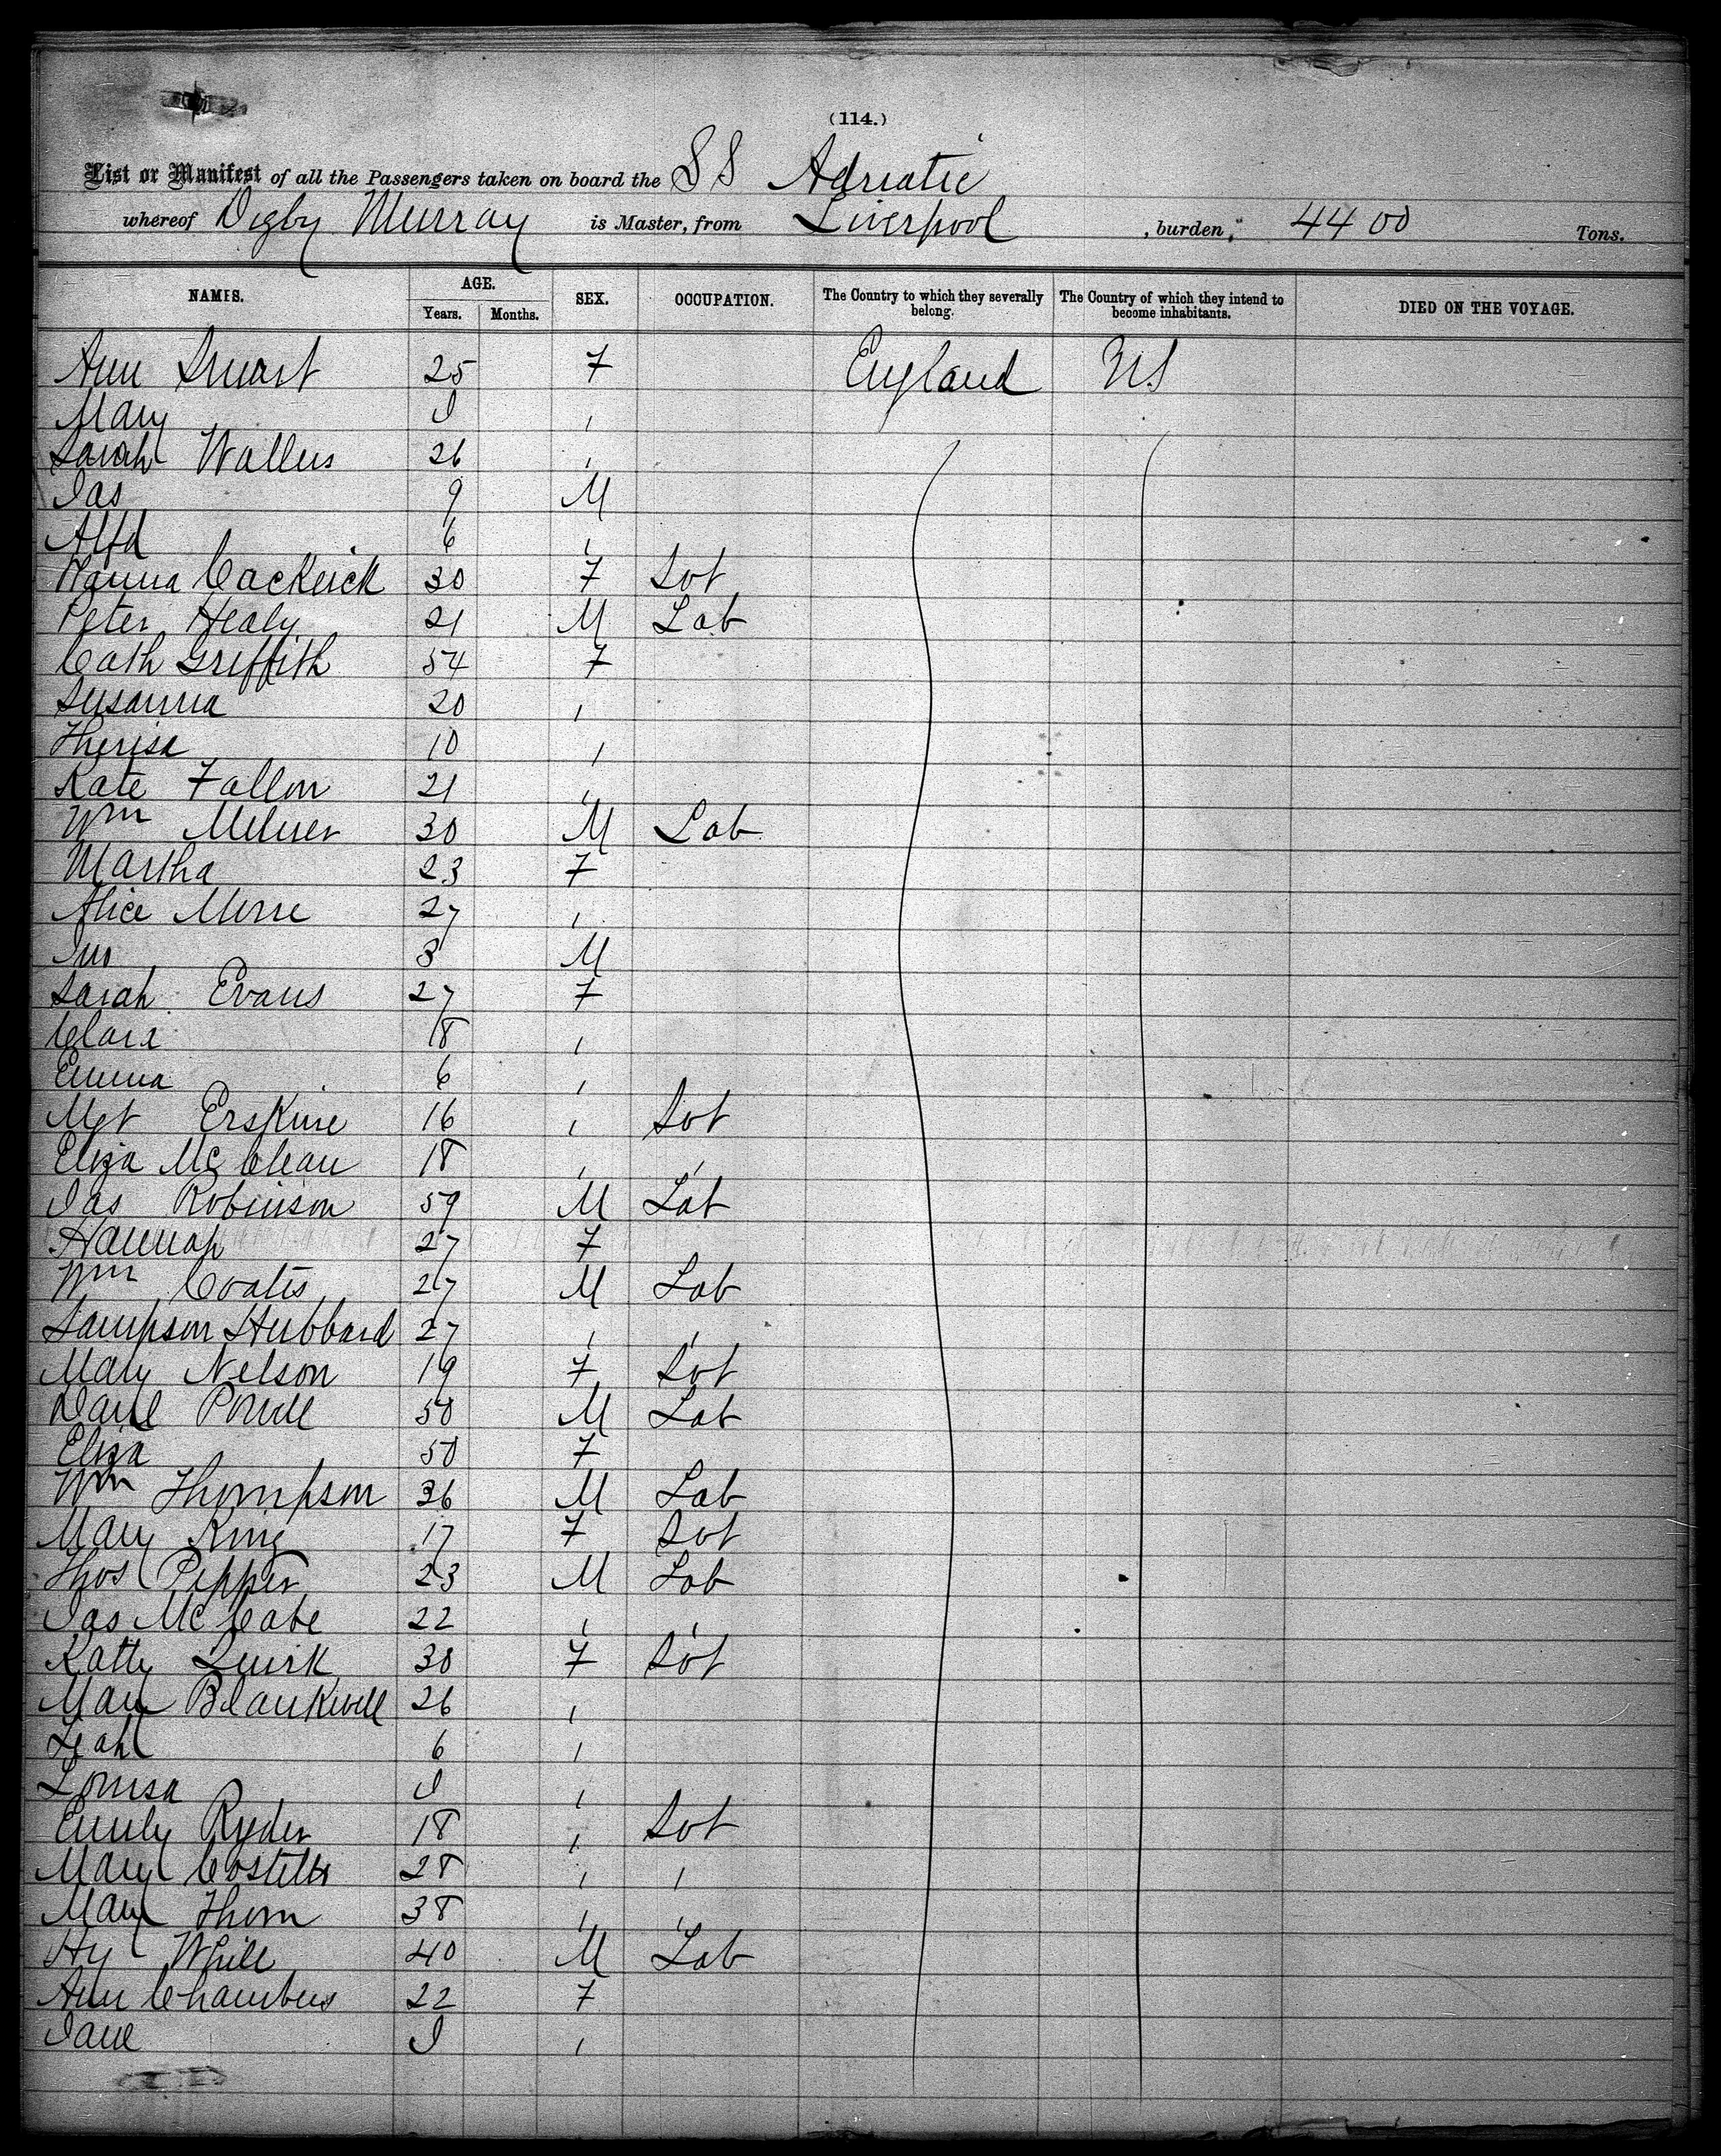 (114.)
List or Manifest of all the Passengers taken on board the SS Adriatic
whereof Digby Murray is Master, from Liverpool, burden, 4400 Tons.
NAMES. AGE. Years. Months. SEX. OCCUPATION. The Country to which they severally belong. The Country of which they intend to become inhabitants. DIED ON THE VOYAGE.
Ann Smart 25 F England US
Mary ,
Sarah Wallers 26 ,
Jas 9 M
Alfd 6 ,
Hanna 30 F Svt
Peter Healy 21 M Lab
Cath Griffith 54 F
Susanna 20 ,
Theresa 10 ,
Kate Fallon 21 ,
Wm Milner 30 M Lab
Martha 23 F
Alice Morre 27 ,
Jno 3 M
Sarah Evans 27 F
Clara 18 ,
Emma 6 ,
Mgt Erskine 16 , Svt
Eliza McClean 18 , ,
Jas Robinson 59 M Lab
Hannah 27 F
Wm Coates 27 M Lab
Sampson Hubbard 27 , ,
Mary Nelson 19 F Svt
Danl Powell 50 M Lab
Eliza 50 F
Wm Thompson 36 M Lab
Mary King 17 F Svt
Thos Pepper 23 M Lab
Jas McCabe 22 , ,
Katty Quirk 30 F Svt
Mary Blankwell 26 ,
Leah 6 ,
Louisa ,
Emily Ryder 18 , Svt
Mary Costello 28 , ,
Mary Thom 38 , ,
Hy 40 M Lab
Ann Chambers 22 F
Jane ,